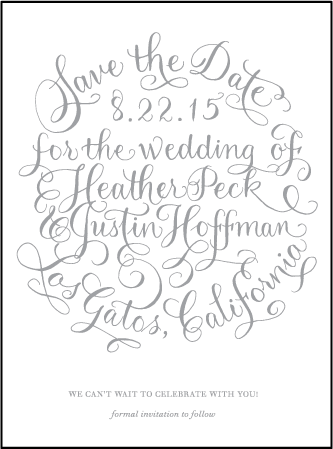 Save the Date
8.22.15
for the wedding of
Heather Peck
& Justin Hoffman
Los Gatos, California
WE CAN'T WAIT TO CELEBRATE WITH YOU!
formal invitation to follow